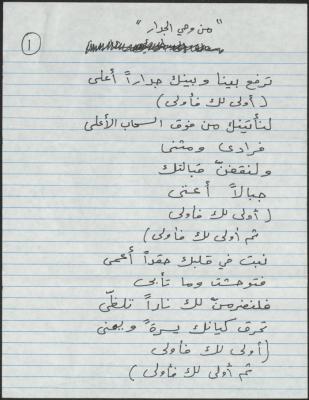 "من وحي الجدار"
1
ترفع بيننا وبينك جداراً أعلى
(أولى لك فأولى)
لنأتينك من فوق السحاب الأعلى
فرادى ومثنى
ولنقفنّ قبالتك
جبالاً أعتى
(أولى لك فأولى
ثم أولى لك فأولى)
نبت في قلبك حقداً أعمى
فتوحشت وما تأبى
فلنضرمنّ لك ناراً تلظّى
تحرق كيانك يسرةً ويمنى
(أولى لك فأولى
ثم أولى لك فأولى)